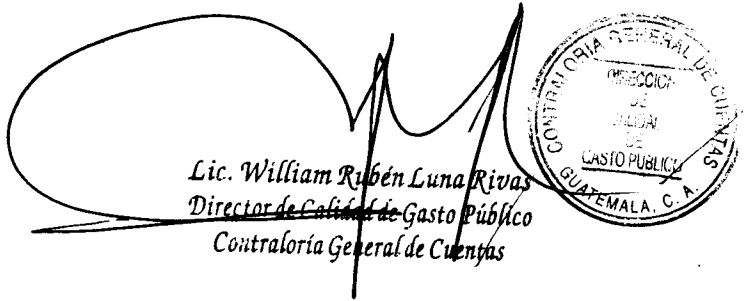 Lic. William Rubén Luna Rivas
Director de Calidad de Gasto Público
Contraloría General de Cuentas
CONTRALORIA GENERAL DE CUENTAS
DIRECCION
DE
CALIDAD
DE
GASTO PUBLICO
GUATEMALA, C. A.